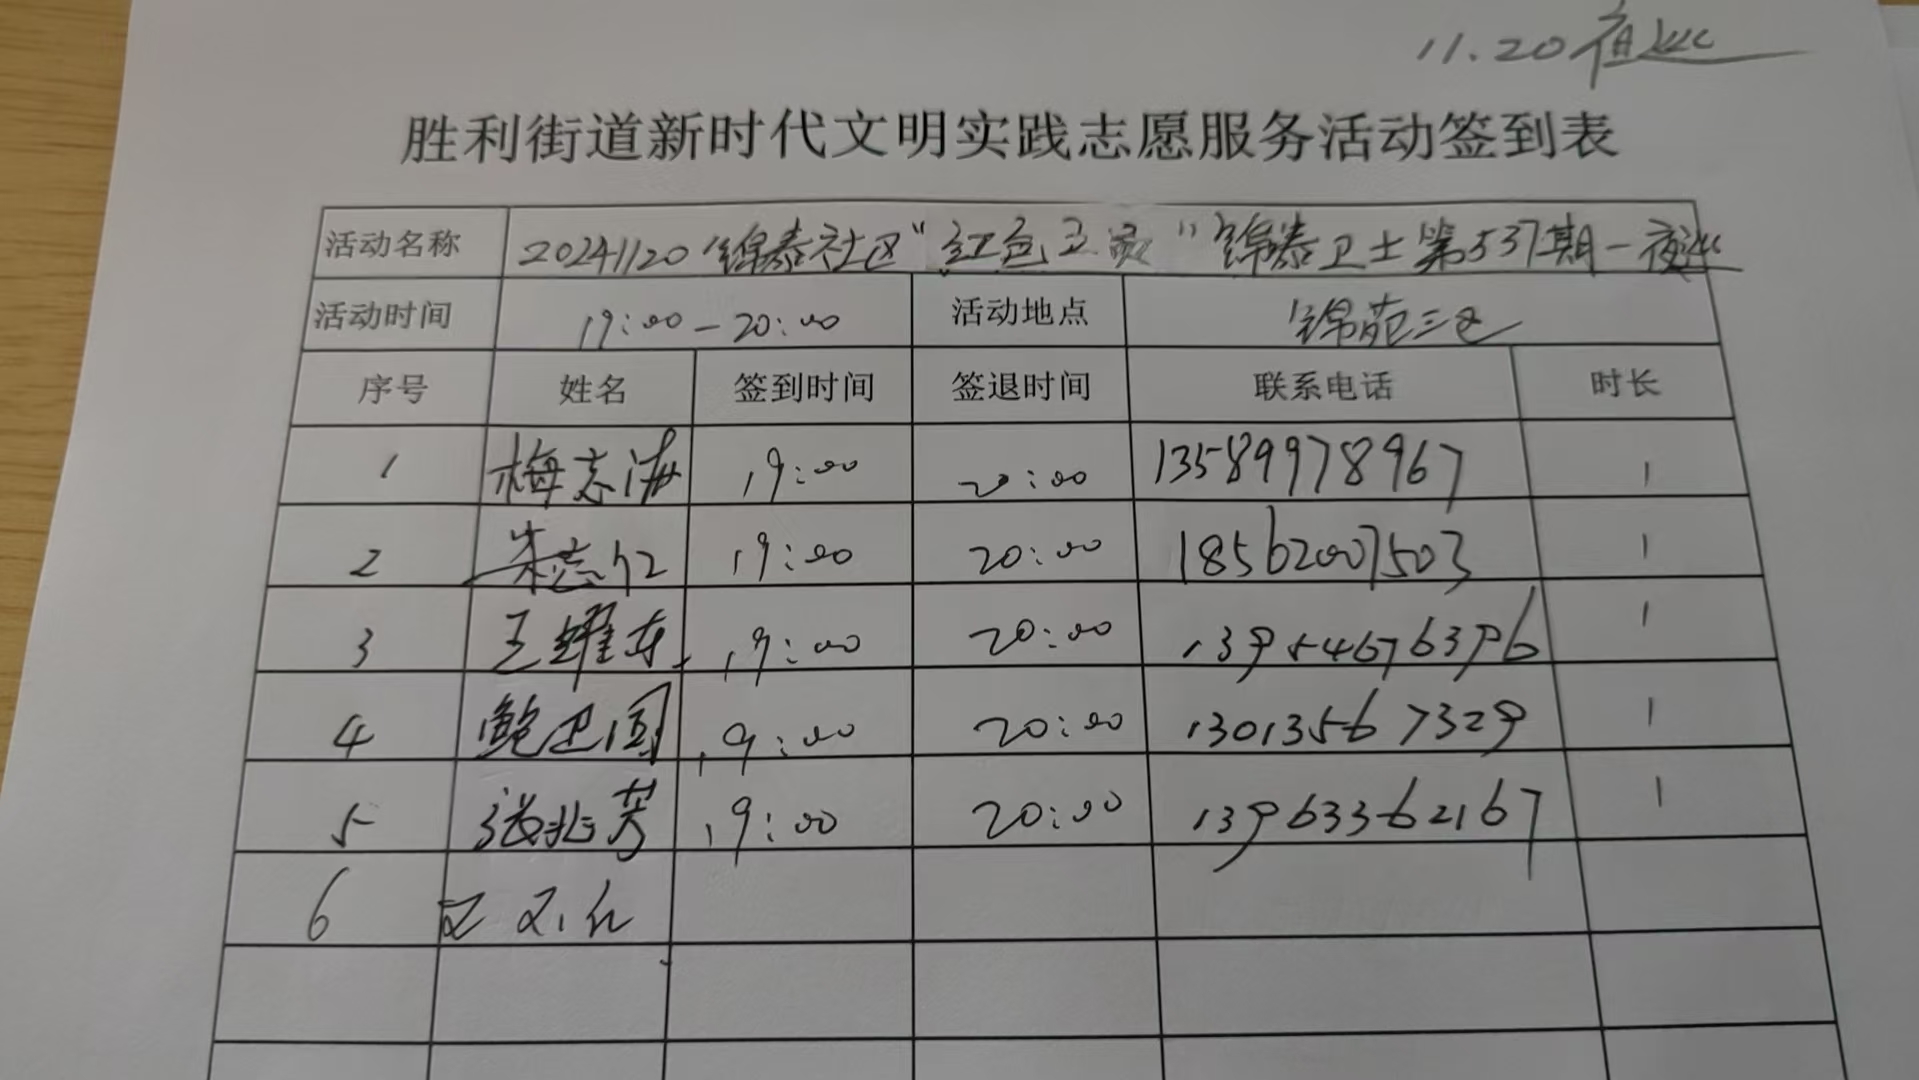 11.20夜巡
胜利街道新时代文明实践志愿服务活动签到表
活动名称 20241120锦泰社区"红色卫" 锦泰卫士第537期-夜巡
活动时间 19:00-20:00 活动地点 锦苑三区
序号 姓名 签到时间 签退时间 联系电话 时长
1 梅志海 19:00 20:00 13589978967 1
2 朱志仁 19:00 20:00 18562007503 1
3 王耀东 19:00 20:00 13954676396 1
4 鲍卫国 19:00 20:00 13013567329 1
5 张兆芳 19:00 20:00 13963362167 1
6